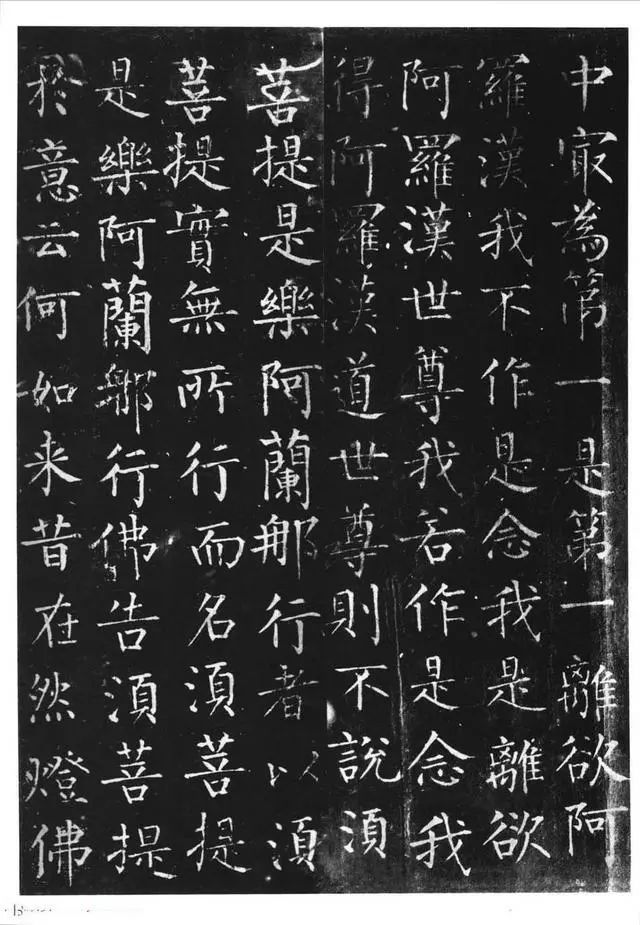 中寂為第一是第一離欲阿
羅漢我不作是念我是離欲
阿羅漢世尊我若作是念我
得阿羅漢道世尊則不說須
菩提是樂阿蘭那行者以須
菩提實無所行而名須菩提
是樂阿蘭那行佛告須菩提
於意云何如来昔在然燈佛